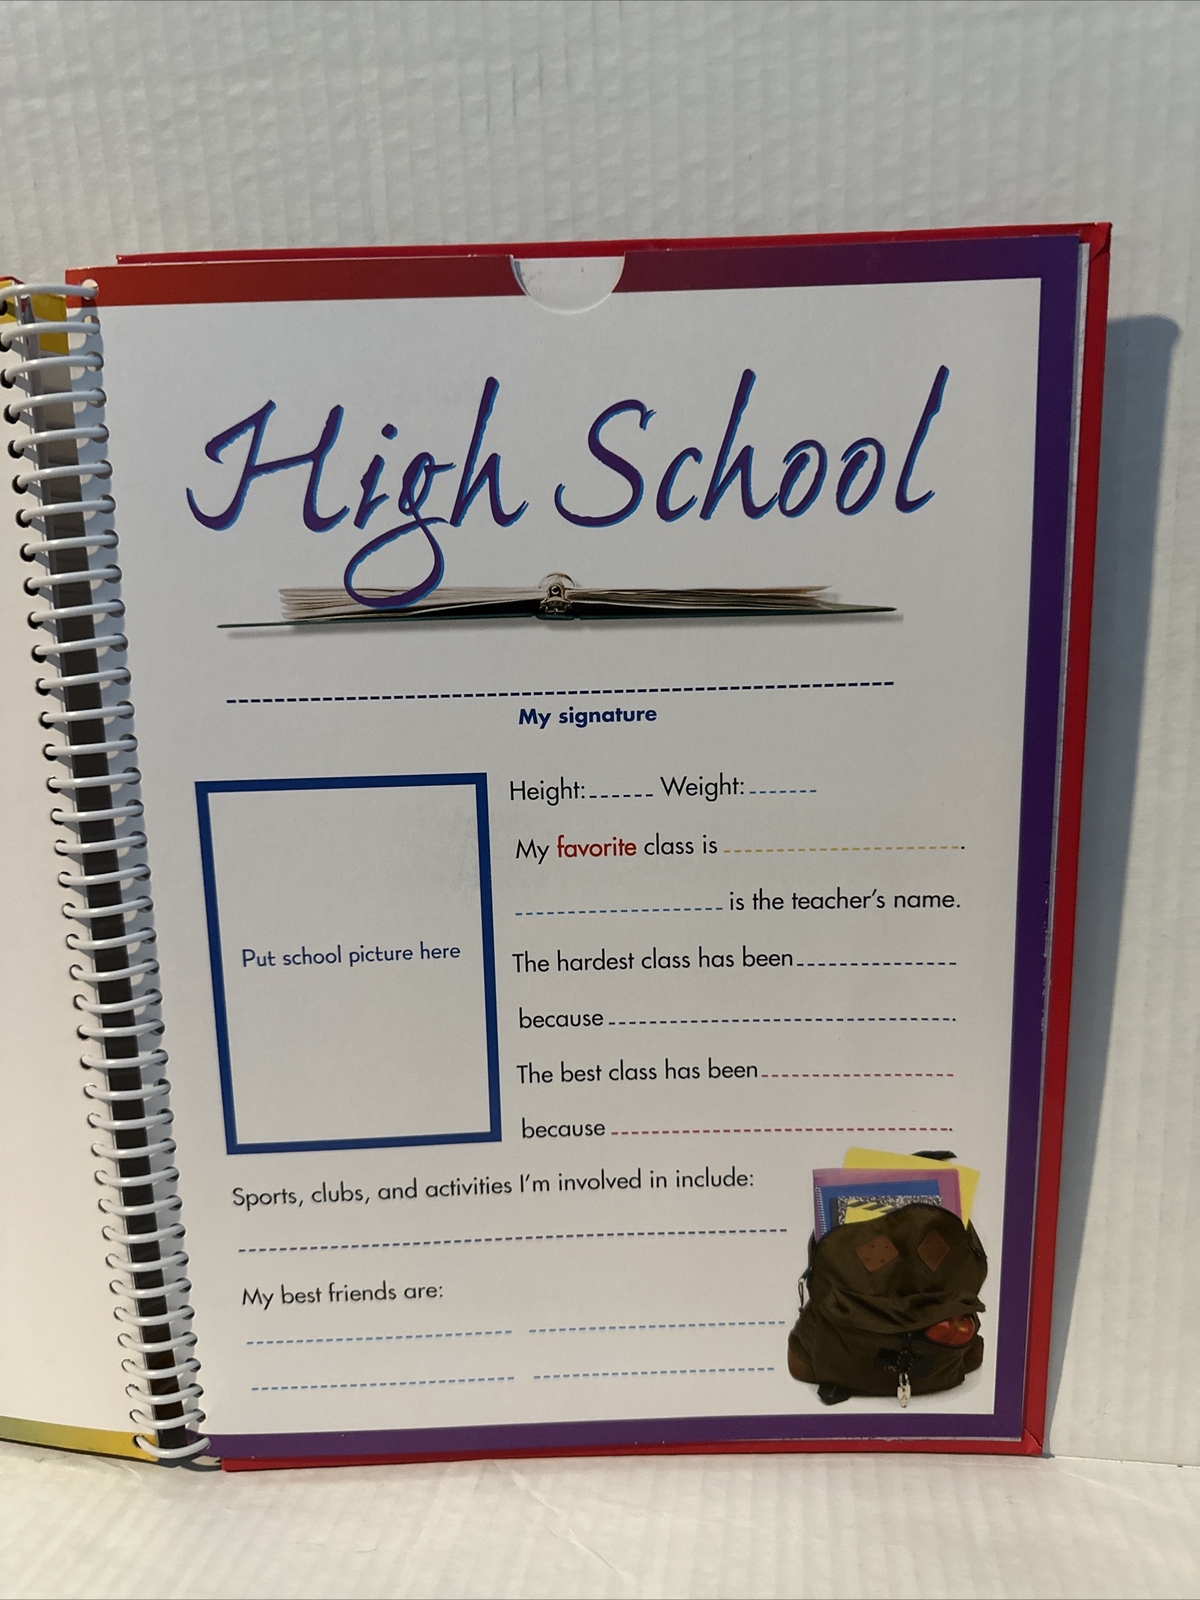 High School
My signature
Put school picture here
Height: Weight:
My favorite class is .
is the teacher's name.
The hardest class has been
because .
The best class has been
because .
Sports, clubs, and activities I'm involved in include:
My best friends are: